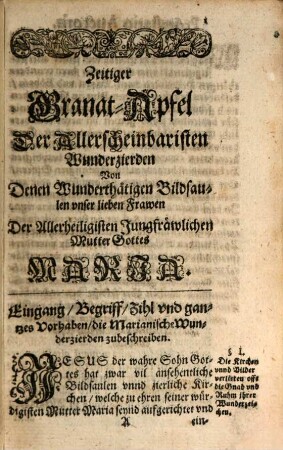 Zeitiger
Granat-Apfel
Der Allerscheinbaristen
Wunderzierden
Von
Denen Wunderthätigen Bildsau-
len vnser lieben Frawen
Der Allerheiligisten Jungfräwlichen
Mutter Gottes
MARIA.
Eingang / Begriff / Zihl vnd gan-
tzes Vorhaben / die Marianische Wun-
derzierden zubeschreiben.
JESUS der wahre Sohn Got-
tes hat zwar vil ansehentliche
Bildsaulen vnnd zierliche Kir-
chen / welche zu ehren seiner wür-
digisten Mutter Maria seynd auffgerichtet vnd
§ 1.
Die Kirchen
vnnd Bilder
vertretten offt
die Gnad vnd
Ruhm jhrer
Wunderzei-
chen.
A
ein-